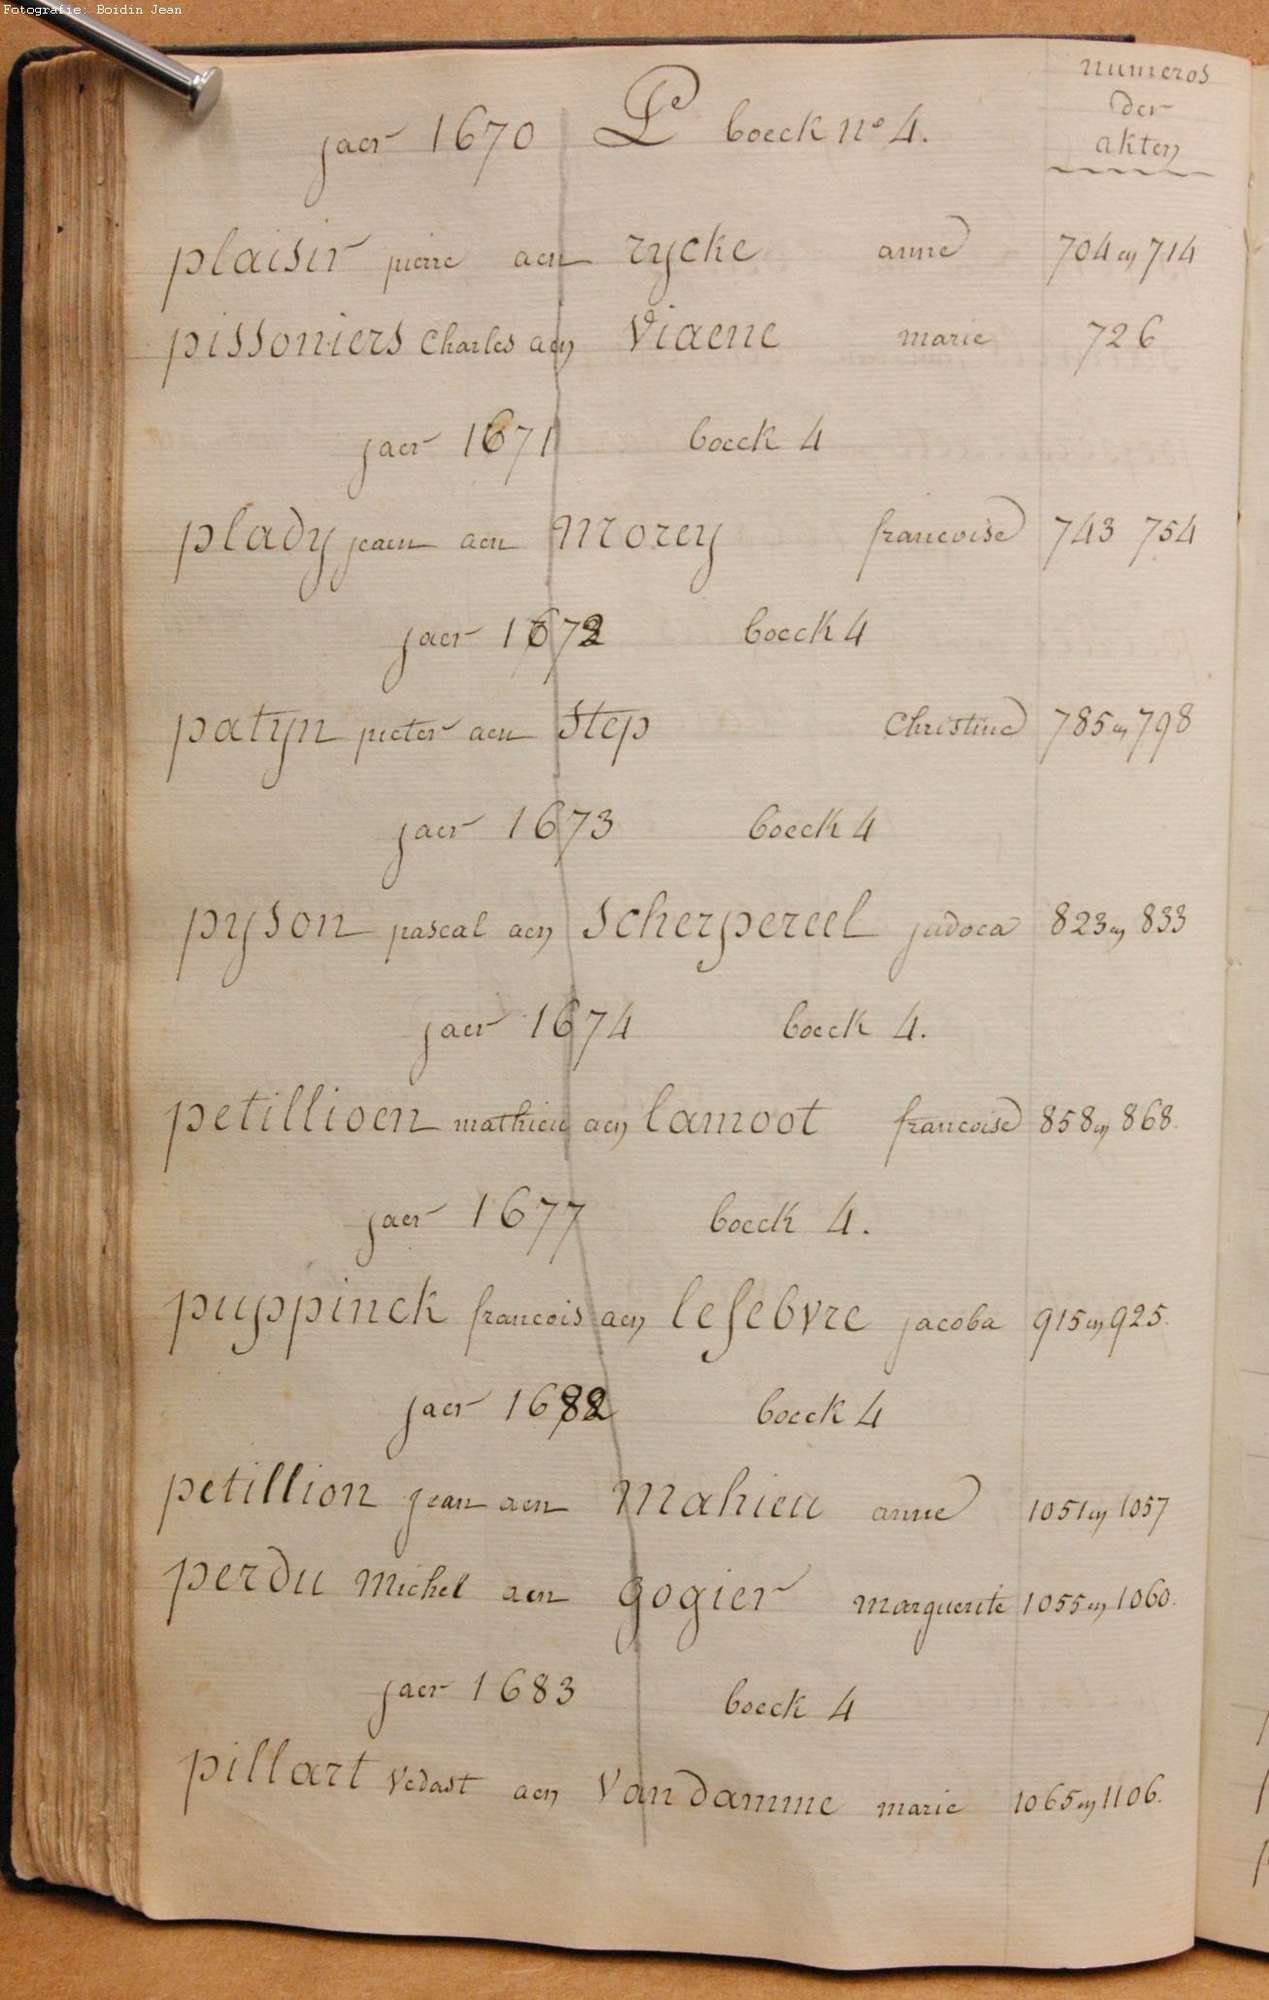 Fotografie: Boidin Jean
numeros
der
akten
jaer 1670 Pe boeck no 4.
plaisir pierre aen rycke anne 704 en 714
pissoniers Charles aen Viaene marie 726
jaer 1671 boeck 4
plady jeaen aen Morey francoise 743 754
jaer 1672 boeck 4
patyn pieter aen Step Christine 785 en 798
jaer 1673 boeck 4
pyson pascal aen Scherpereel judoca 823 en 833
jaer 1674 boeck 4.
petillioen mathieu aen lamoot francoise 858 en 868.
jaer 1677 boeck 4.
puyppinck francois aen lefebvre jacoba 915 en 925.
jaer 1682 boeck 4
petillion jean aen Mahieu anne 1051 en 1057
perdu Michel aen gogier marguerite 1055 en 1060.
jaer 1683 boeck 4
pillart Vedast aen Van damme marie 1065 en 1106.